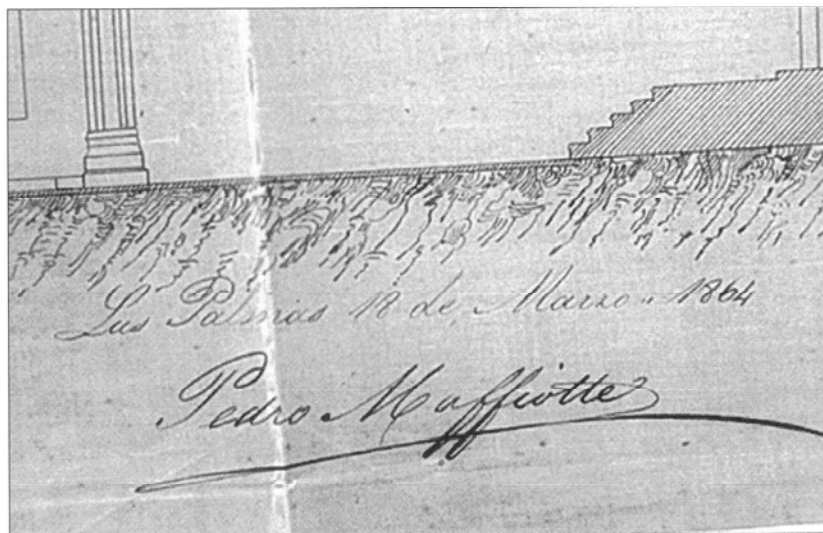 Las Palmas 18 de Marzo 1864
Pedro Maffiotte